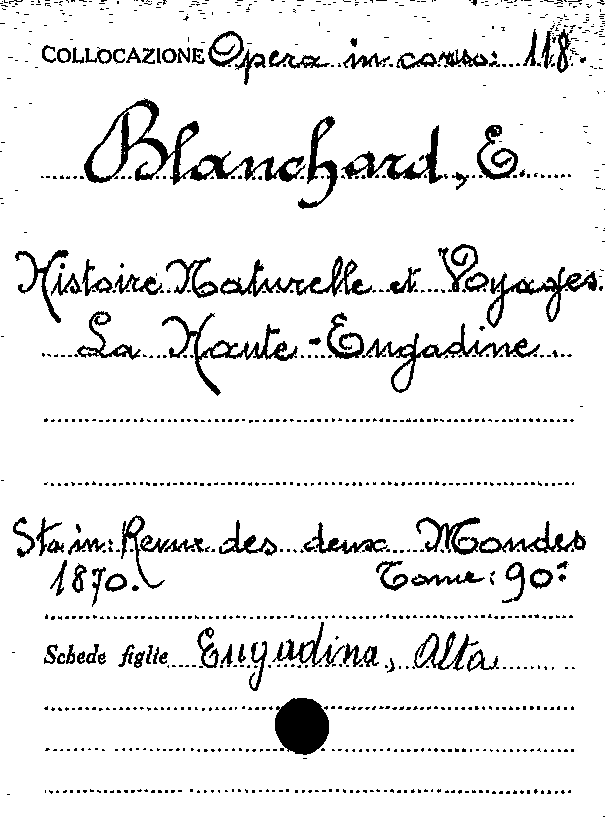 COLLOCAZIONE Opera in corso: 118.
Blanchard, E.
Histoire Naturelle et Voyages.
La Haute-Engadine.
Sta in: Revue des deux Mondes
1870. Tome: 90º
Schede figlie Engadina, Alta